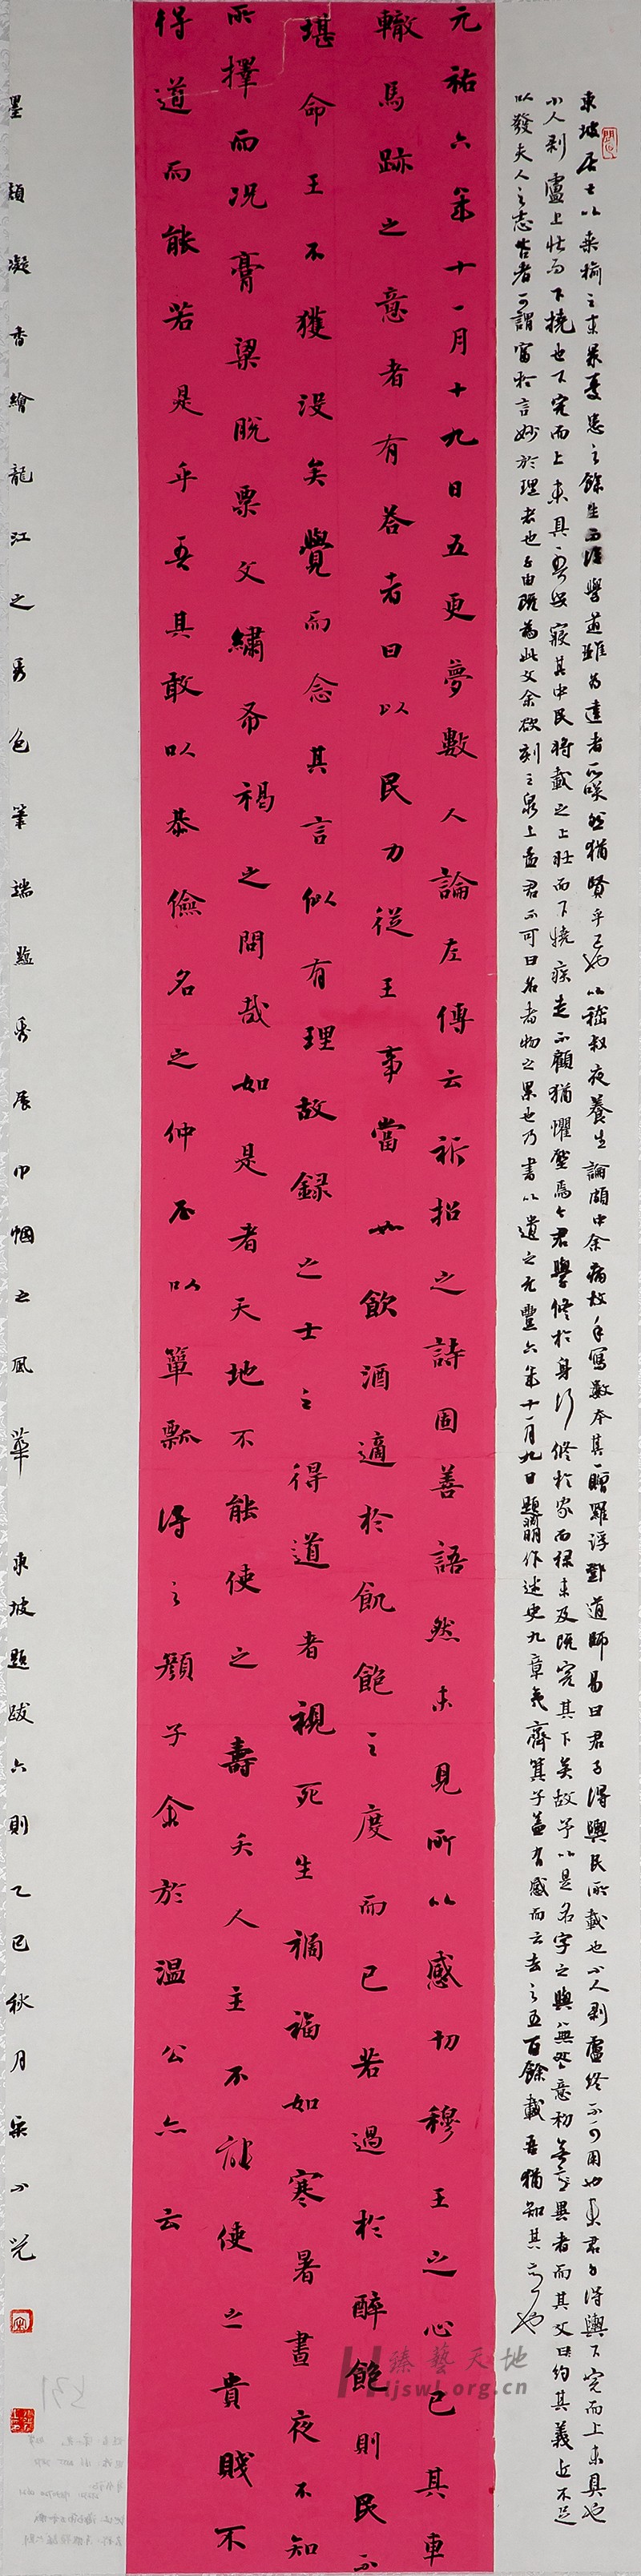 東坡居士以桑榆之末景憂患之餘生而後學道雖為達者所笑然猶賢乎已也以嵇叔夜養生論頗中余病故手寫數本其一贈羅浮鄧道師易曰君子得輿民所載也小人剥廬終不可用也東君子得輿下完而上未具也
小人剥廬上壮而下撓也下完而上未具吾安寢其中民將載之上壮而下撓疾走不顧猶懼壓焉今君學修於身行修於家而禄未及既完其下矣故予以是名字之與無咎意初無異者而其文曰約其義近不足
以發夫人之志若者可謂富於言妙於理者也子由既為此文余欲刻之泉上孟君不可曰名者物之累也乃書以遺之元豐六年十一月九日題淵明作述史九章夷齊箕子蓋有感而云去之五百餘載吾猶知其意也
元祐六年十一月十九日五更夢數人論左傳云祈招之詩固善語然未見所以感切穆王之心已其車
轍馬跡之意者有答者曰以民力從王事當如飲酒適於飢飽之度而已若過於醉飽則民不
堪命王不獲没矣覺而念其言似有理故録之士之得道者視死生禍福如寒暑晝夜不知
所擇而况膏粱脱粟文繡布褐之間哉如是者天地不能使之壽夭人主不能使之貴賤不
得道而能若是乎吾其敢以恭儉名之仲尼以簞瓢得之顏子余於温公亦云
墨韻凝香繪龍江之秀色筆端蘊秀展巾幗之風華 東坡題跋六則乙巳秋月
臻藝天地
Hljswl.org.cn